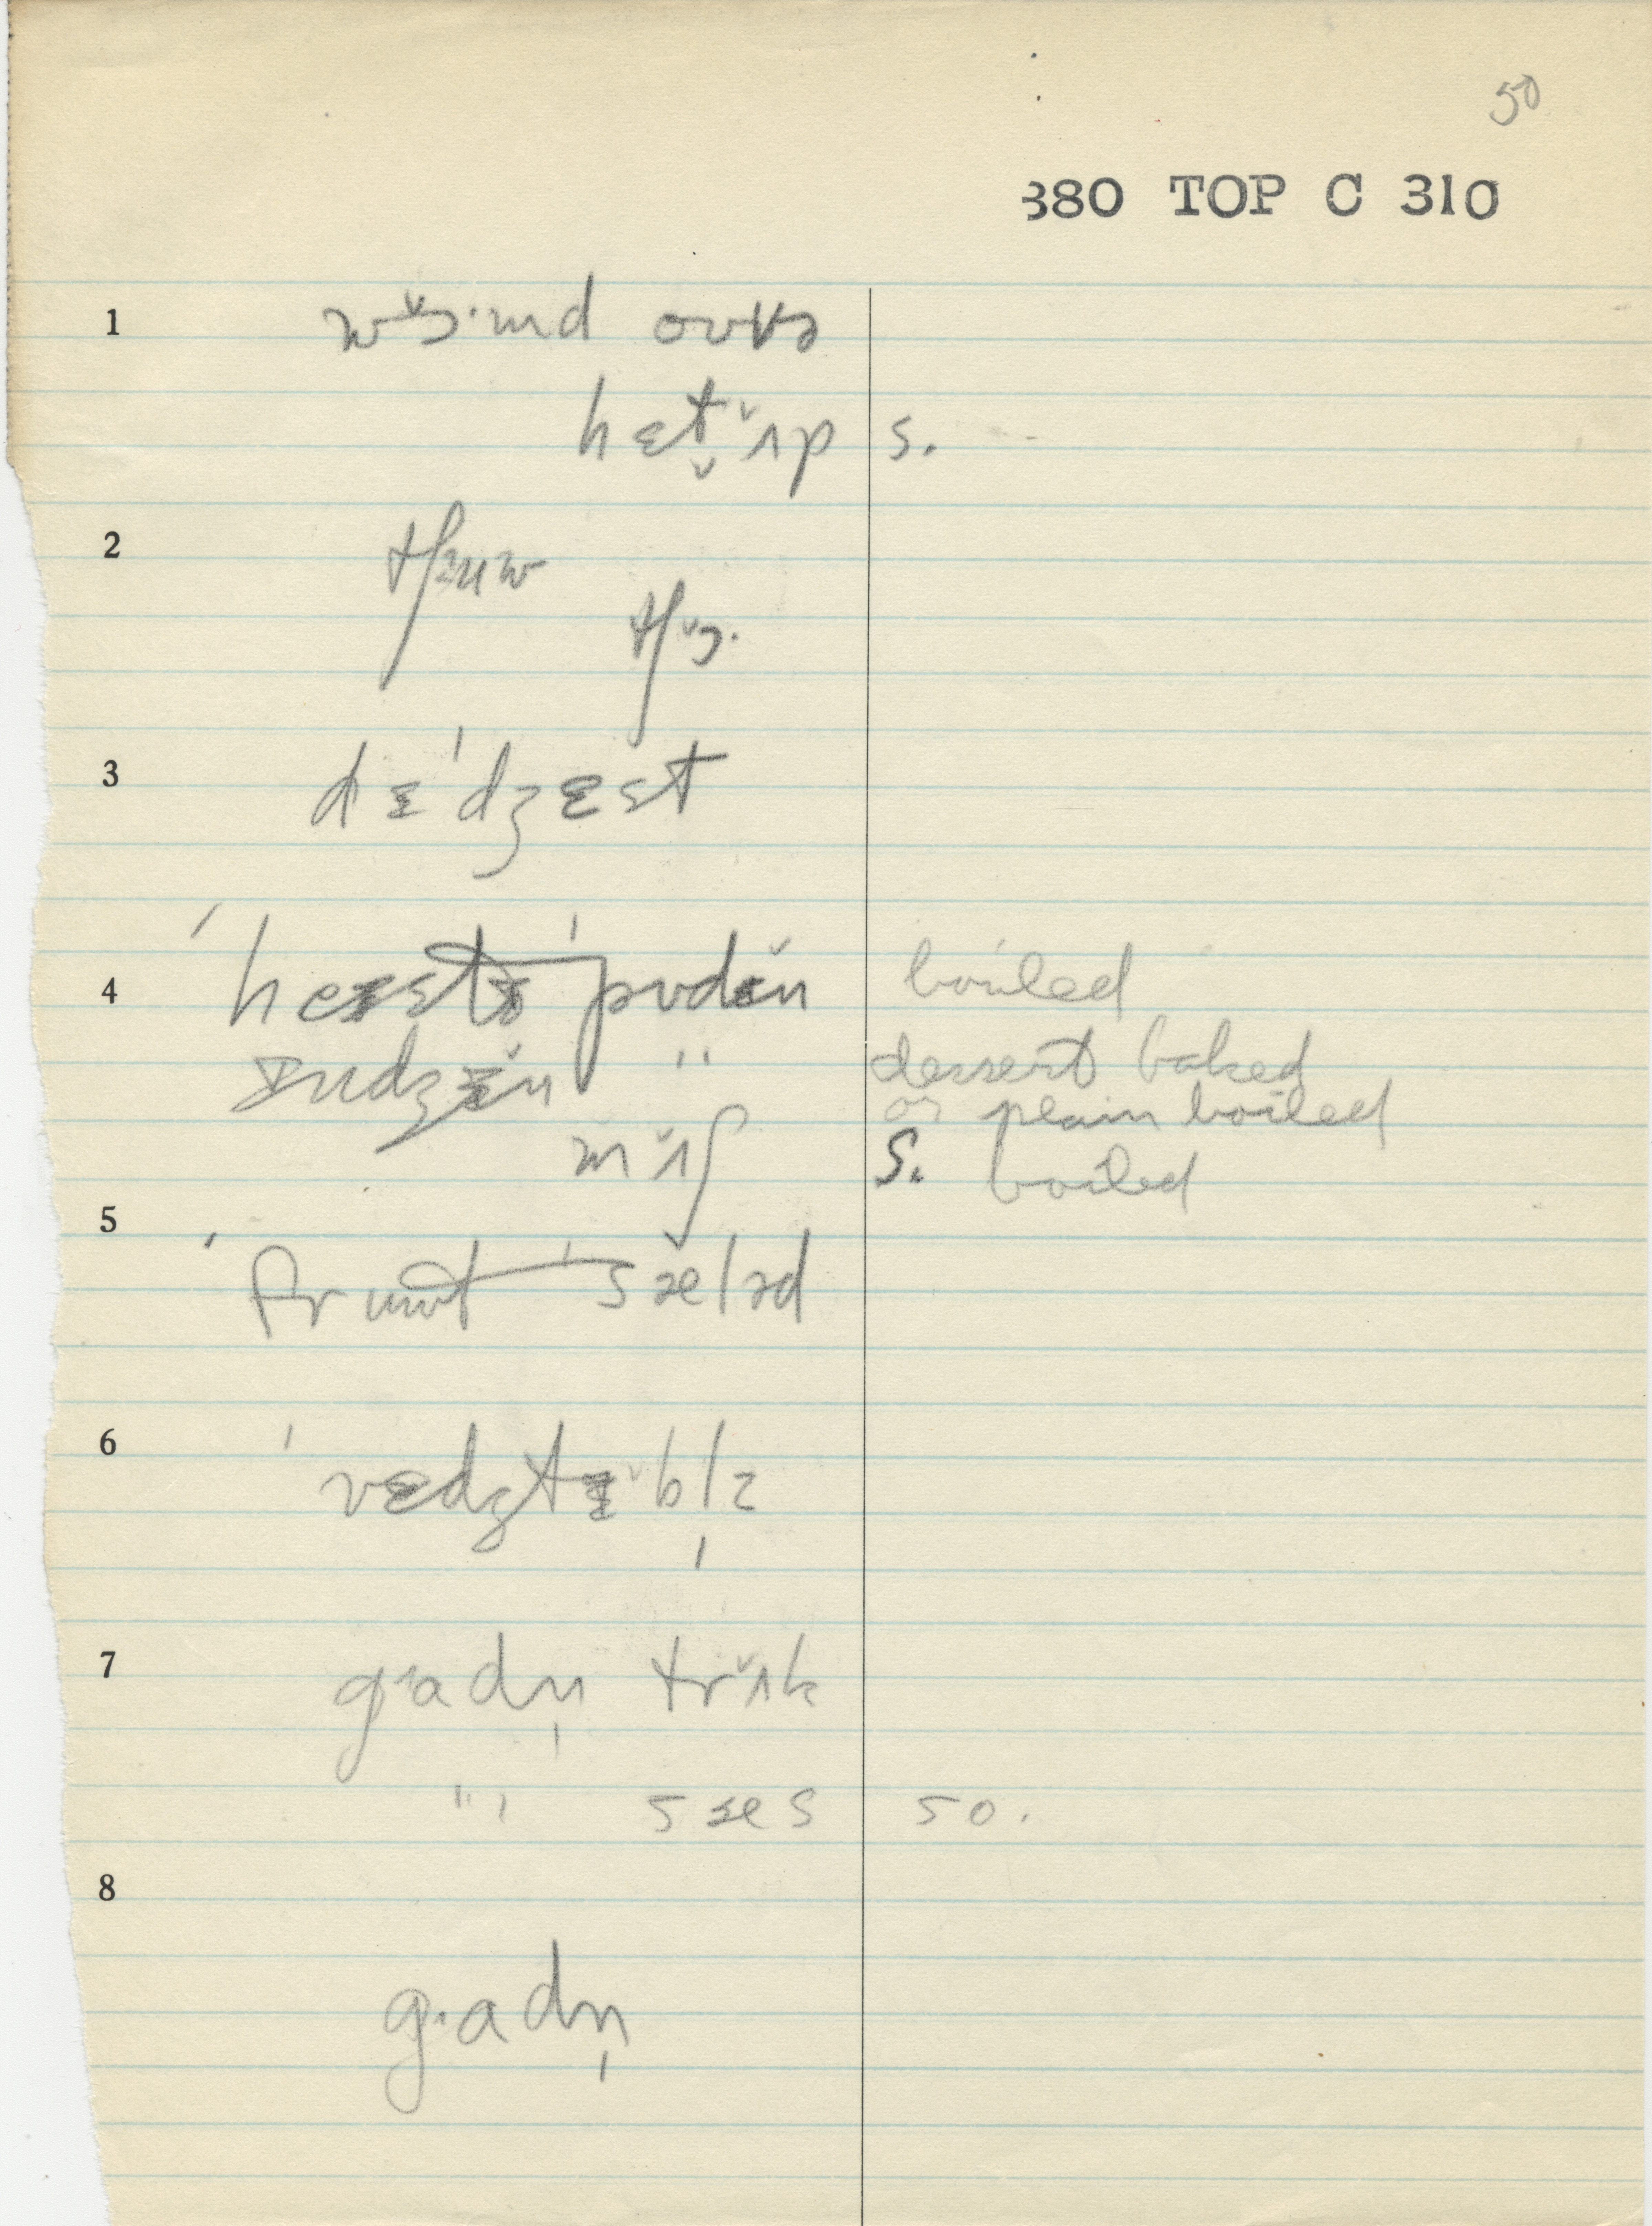 50
380 TOP C 310
1
wɔ̆·md ovɚ
hɛt ʌ̆p s.
2
tʃuw
tʃɔ̆·
3
dɛˈdʒɛst
4
ˈhestɪˈpʊdɪ̆n boiled
ɪndʒɪ̆n " dessert baked
or plain boiled
mʌ̆ʃ S. boiled
5
ˈfruwtˈsæləd
6
ˈvɛdʒtɪ̆bl̩z
7
g·adn̩ trʌ̆k
" sæs so.
8
g·adn̩